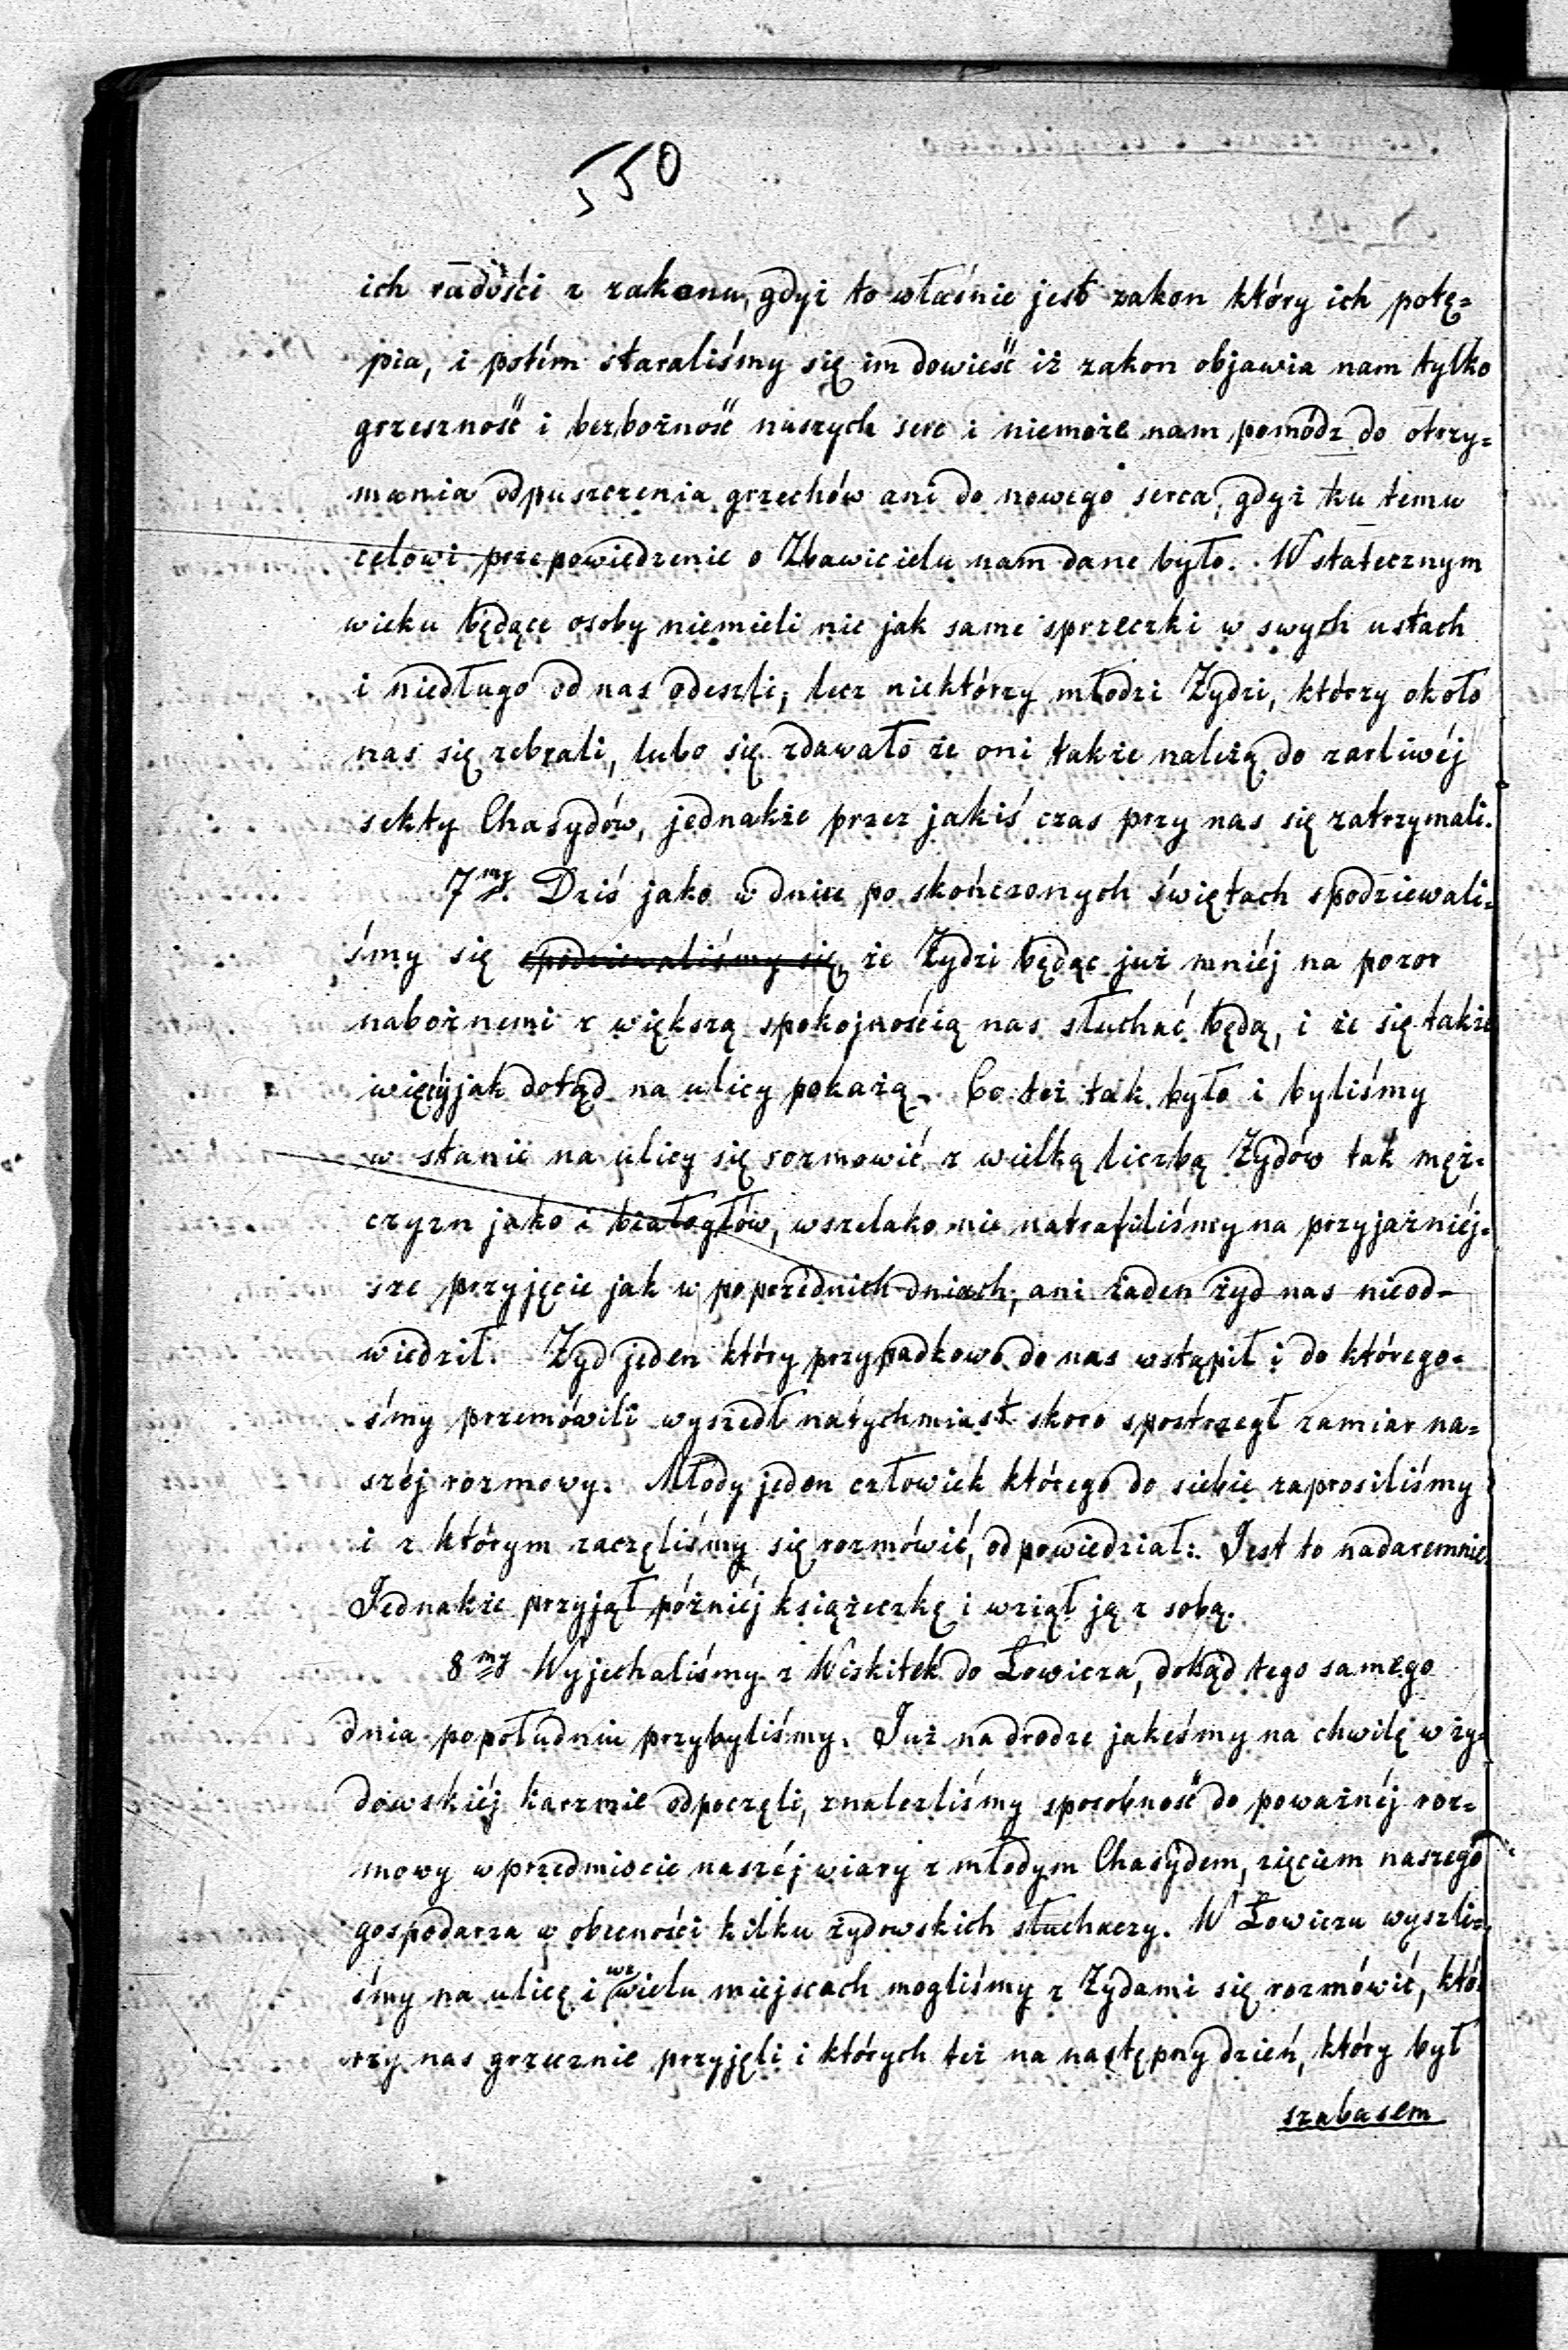 550
ich radości z zakonu, gdyż to właśnie jest zakon który ich potę-
pia, i potém staraliśmy się im dowieść iż zakon objawia nam tylko
grzeszność i bezbożność naszych serc i niemoże nam pomódz do otrzy-
mania odpuszczenia grzechów ani do nowego serca, gdyż ku temu
celowi przepowiedzenie o Zbawicielu nam dane było. W statecznym
wieku będące osoby niemieli nic jak same sprzeczki w swych ustach
i niedługo od nas odeszli, lecz niektórzy młodzi Żydzi, którzy około
nas się zebrali, lubo się zdawało że oni także należą do zarliwéj
sekty Chasydów, jednakże przez jakiś czas przy nas się zatrzymali.
7my. Dziś jako w dniu po skończonych świętach spodziewali-
śmy się spodziewaliśmy się, że Żydzi będąc już mniéj na pozor
nabożnemi z większą spokojnością nas słuchać będą, i że się także
więcéj jak dotąd na ulicy pokażą. Co też tak było i byliśmy
w stanie na ulicy się rozmowić z wielką liczbą Żydów tak męż-
czyzn jako i białogłów, wszelako nie natrafiliśmy na przyjaźniéj-
sze przyjęcie jak w poprzednich dniach, ani żaden żyd nas nieod-
wiedził. Żyd jeden który przypadkowo do nas wstąpił i do którego-
śmy przemówili wyszedł natychmiast skoro spostrzegł zamiar na-
széj rozmowy. Młody jeden człowiek którego do siebie zaprosiliśmy
i z którym zaczęliśmy się rozmówić, odpowiedział: Jest to nadaremnie
Jednakże przyjął późniéj książeczkę i wziął ją z sobą.
8my Wyjechaliśmy z Wiskitek do Łowicza, dokąd tego samego
dnia popołudniu przybyliśmy. Już na drodze jakeśmy na chwilę w ży-
dowskiéj karczmie odpoczęli, znaleźliśmy sposobność do poważnéj roz-
mowy w przedmiocie naszéj wiary z młodym Chasydem, zięciem naszego
gospodarza w obecności kilku żydowskich słuchaczy. W Łowiczu wyszli-
śmy na ulicę i we wielu miejscach mogliśmy z Żydami się rozmówić, któ-
rzy nas grzecznie przyjęli i których też na następny dzień, który był
szabasem